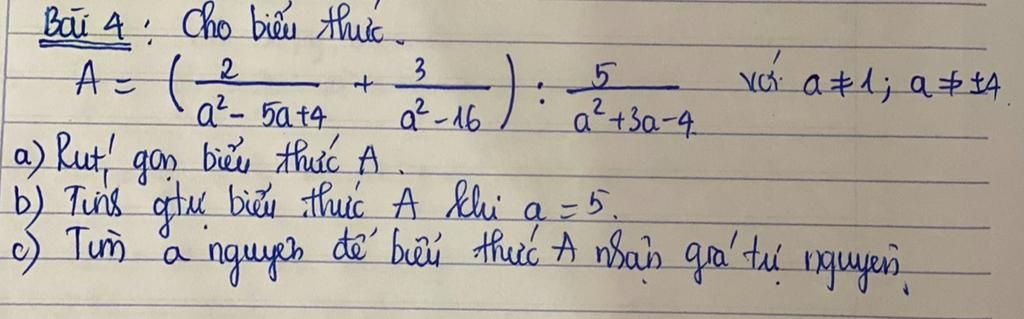 Bài 4 : Cho biểu thức.
A = ( 2/(a² - 5a+4) + 3/(a² - 16) ) : 5/(a² + 3a - 4) với a ≠ 1; a ≠ ±4.
a) Rút gọn biểu thức A.
b) Tính gtrị biểu thức A khi a = 5.
c) Tìm a nguyên để biểu thức A nhận giá trị nguyên.